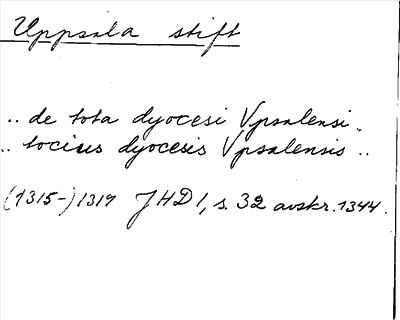 Uppsala stift
.. de tota dyocesi Vpsalensi.
.. tocius dyocesis Vpsalensis ..
(1315-)1319 JHD 1, s. 32 avskr. 1344.